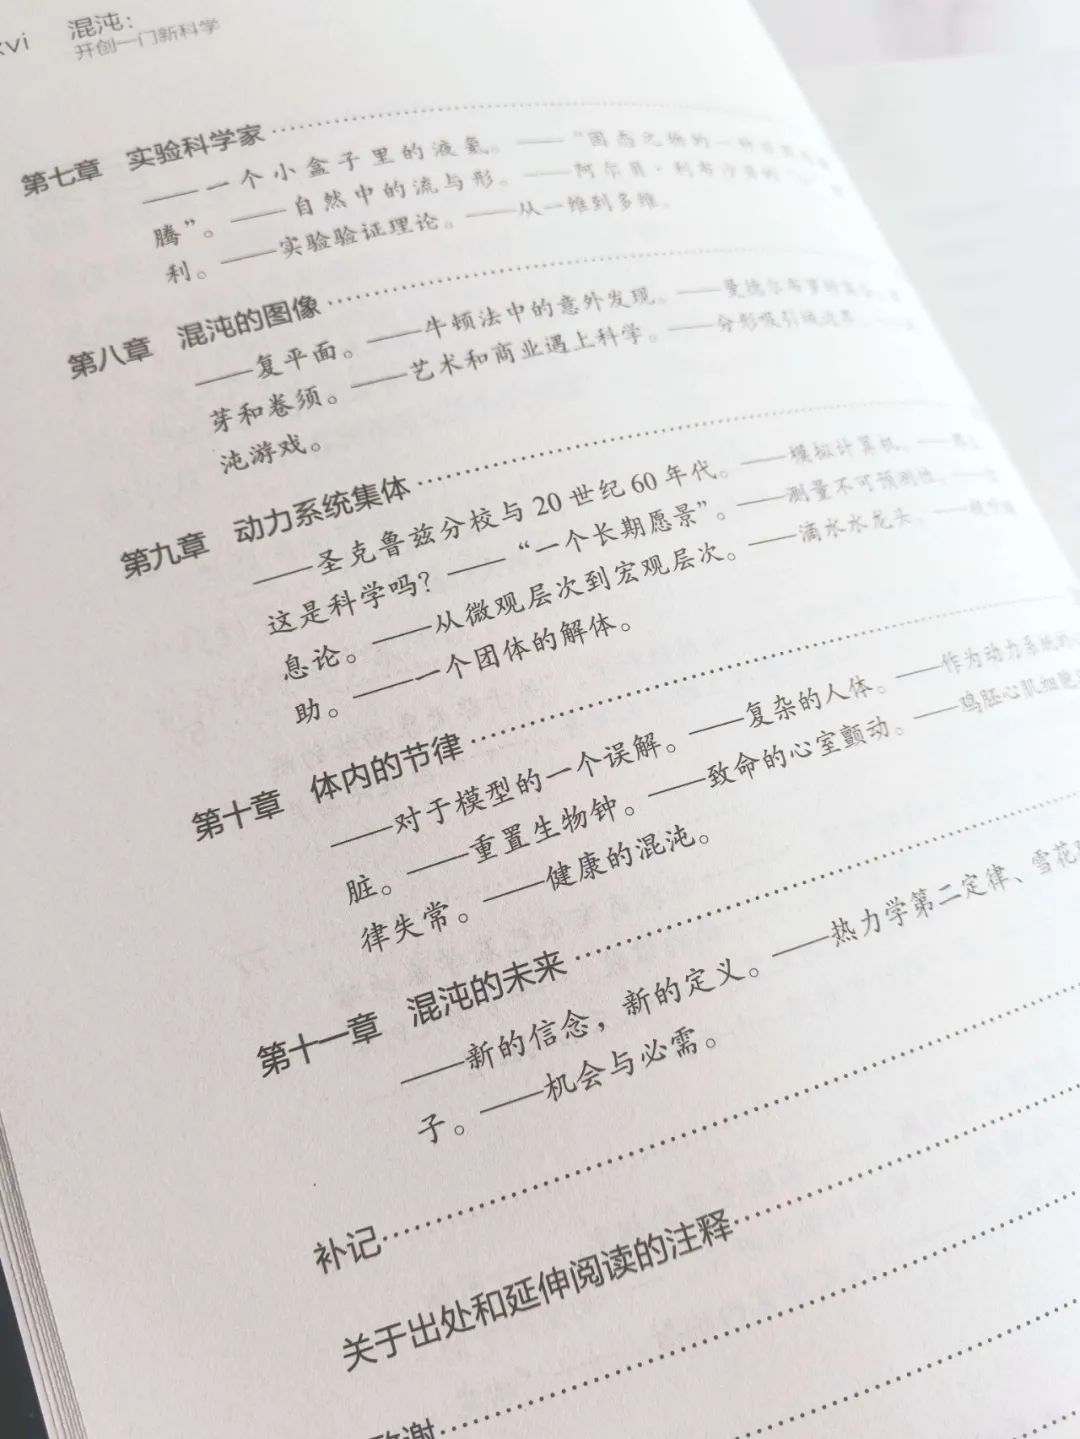 xvi 混沌：
开创一门新科学
第七章 实验科学家
——一个小盒子里的液氦。——“固态之物的一种
腾”。——自然中的流与形。——阿尔贝·利布沙贝的
利。——实验验证理论。——从一维到多维。
第八章 混沌的图像
——复平面。——牛顿法中的意外发现。——曼德尔布罗特集合
芽和卷须。——艺术和商业遇上科学。——分形吸引域边界。
沌游戏。
第九章 动力系统集体
——圣克鲁兹分校与20世纪60年代。——模拟计算机。
这是科学吗？——“一个长期愿景”。——测量不可预测性。
息论。——从微观层次到宏观层次。——滴水水龙头。
助。——一个团体的解体。
第十章 体内的节律
——对于模型的一个误解。——复杂的人体。——作为动力系统的
脏。——重置生物钟。——致命的心室颤动。——鸡胚心肌细胞
律失常。——健康的混沌。
第十一章 混沌的未来
——新的信念，新的定义。——热力学第二定律、雪花
子。——机会与必需。
补记
关于出处和延伸阅读的注释
致谢